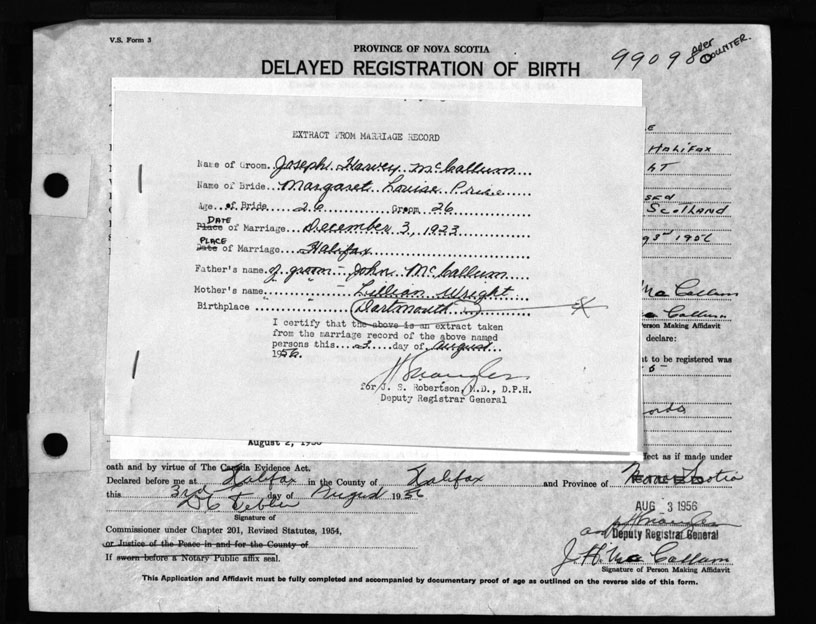 V.S. Form 3
PROVINCE OF NOVA SCOTIA
DELAYED REGISTRATION OF BIRTH
99098 after COUNTER.
EXTRACT FROM MARRIAGE RECORD
Name of Groom Joseph Harvey McCallum
Name of Bride Margaret Louise Price
Age of Bride 26 Groom 26
DATE
Place of Marriage December 3, 1923
PLACE
Date of Marriage Halifax
Father's name of groom - John McCallum
Mother's name " " Lillian Wright
Birthplace Dartmouth
I certify that the above is an extract taken
from the marriage record of the above named
persons this 3 day of August
1956.
for J. S. Robertson, M.D., D.P.H.
Deputy Registrar General
E
Halifax
HT
SED
Scotland
1956
Mac Callum
Callum
erson Making Affidavit
declare:
nt to be registered was
ords
August 2, 1956
ffect as if made under
oath and by virtue of The Canada Evidence Act.
Declared before me at Halifax in the County of Halifax and Province of Nova Scotia
this 3rd day of August 1956
Signature of
AUG 3 1956
Commissioner under Chapter 201, Revised Statutes, 1954,
and Deputy Registrar General
or Justice of the Peace in and for the County of
If sworn before a Notary Public affix seal.
J. H. Mac Callum
Signature of Person Making Affidavit
This Application and Affidavit must be fully completed and accompanied by documentary proof of age as outlined on the reverse side of this form.